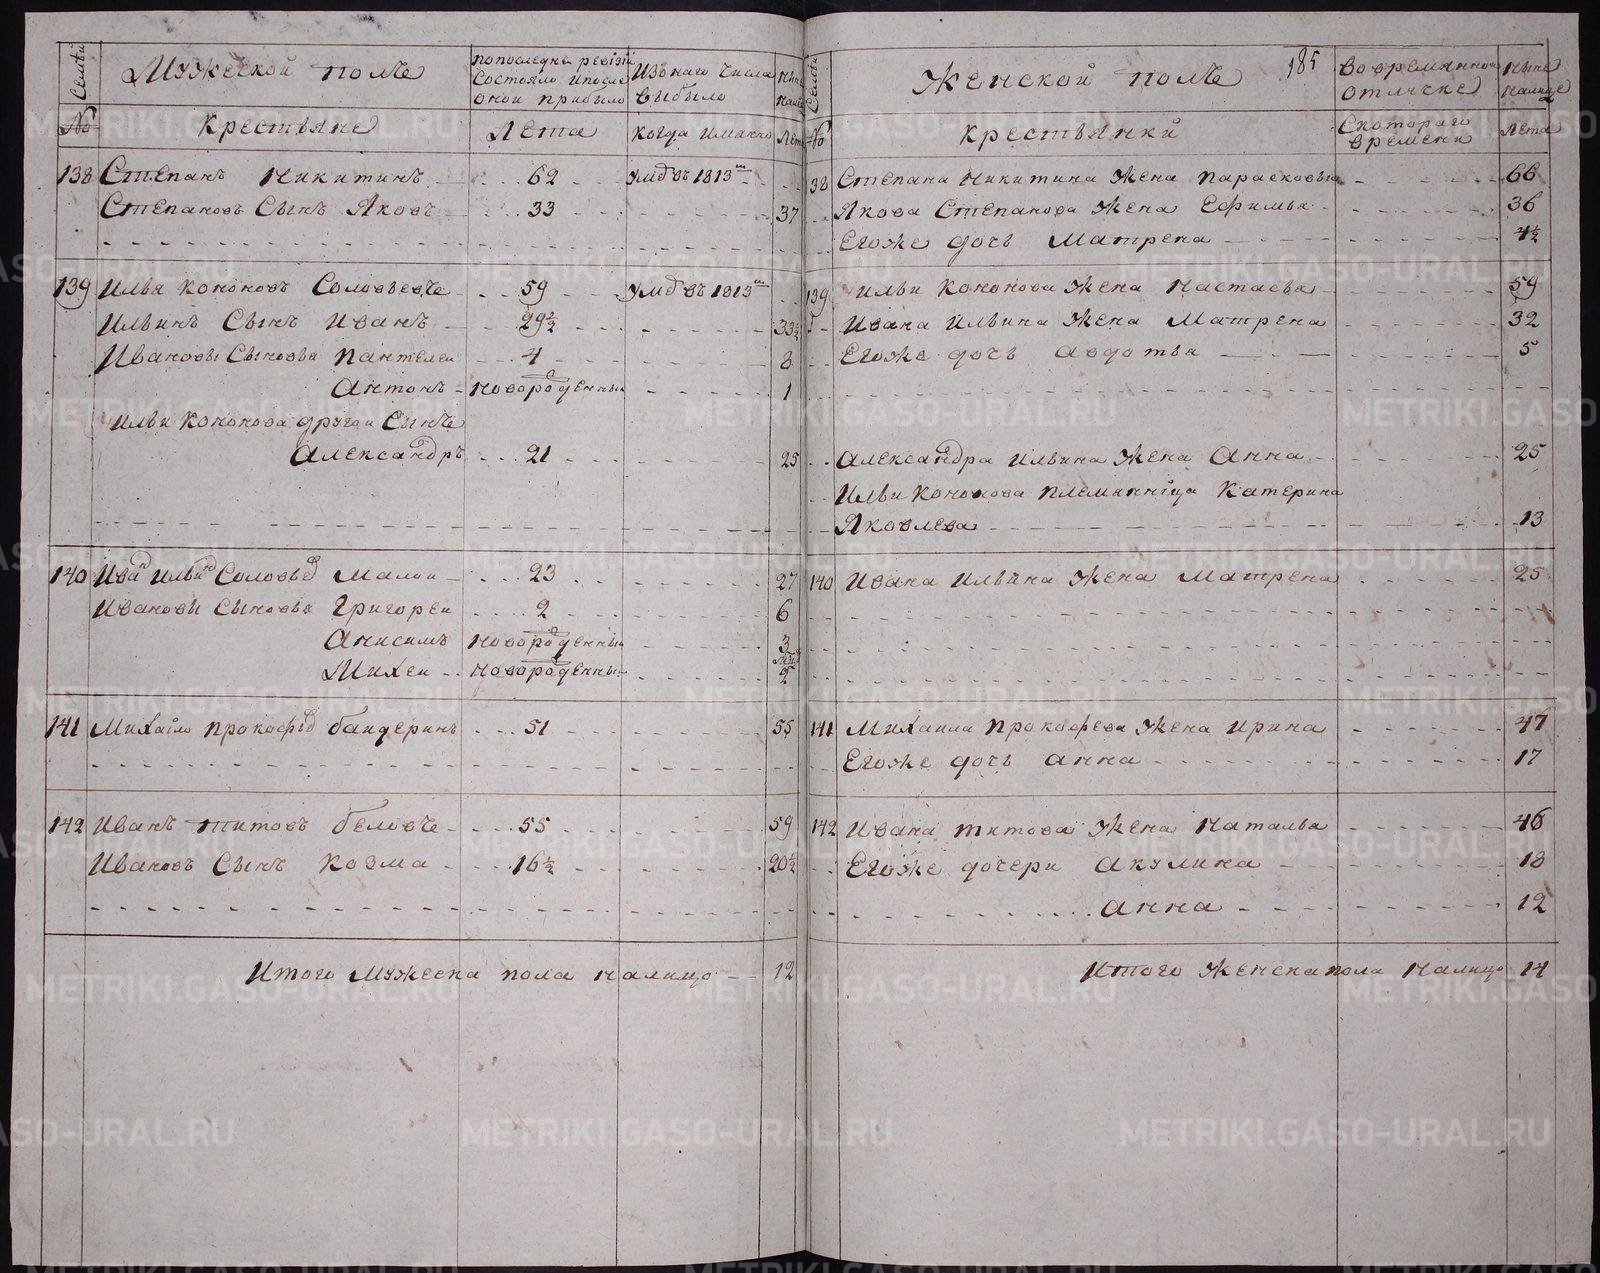 Семьи
Мужеской полъ
По последней ревизiи состояло и после оной прибыло
Изъ наго числа выбыло
Ныне на лицо
№
Крестьяне
Лета
Когда имянно
Лета
138 Степанъ Никитинъ 62 умъ въ 1813м
Степановъ Сынъ Яковъ 33 37
139 Илья Кононовъ Соловьевъ 59 умъ въ 1813м
Ильинъ Сынъ Иванъ 29½ 33½
Ивановы Сыновья Пантелеи 4 8
Антонъ новорожденныи 1
Ильи Кононова другои Сынъ
Александръ 21 25
140 Иванъ Ильинъ Соловьевъ Малои 23 27
Ивановы Сыновья Григореи 2 6
Анисимъ новорожденныи 3
Михеи новорожденныи 2
141 Михаiло Прокофьевъ Бандеринъ 51 55
142 Иванъ Титовъ Беловъ 55 59
Ивановъ Сынъ Козма 16½ 20½
Итого Мужеска пола налицо 12
185
Семьи
Женской полъ
Во временной отлучке
Ныне на лице
№
Крестьянки
С котораго времени
Лета
38 Степана Никитина Жена Парасковья 66
Якова Степанова Жена Ефимья 36
Егоже дочь Матрена 4½
139 Ильи Кононова Жена Настасья 59
Ивана Ильина Жена Матрена 32
Егоже дочь Авдотья 5
Александра Ильина Жена Анна 25
Ильи Кононова Племяннiца Катерина
Яковлева 13
140 Ивана Ильина Жена Матрена 25
141 Михаила Прокофьева Жена Ирина 47
Егоже дочь Анна 17
142 Ивана Титова Жена Наталья 46
Егоже дочери Акулина 18
Анна 12
Итого Женска пола Налицо 14
METRIKI.GASO-URAL.RU